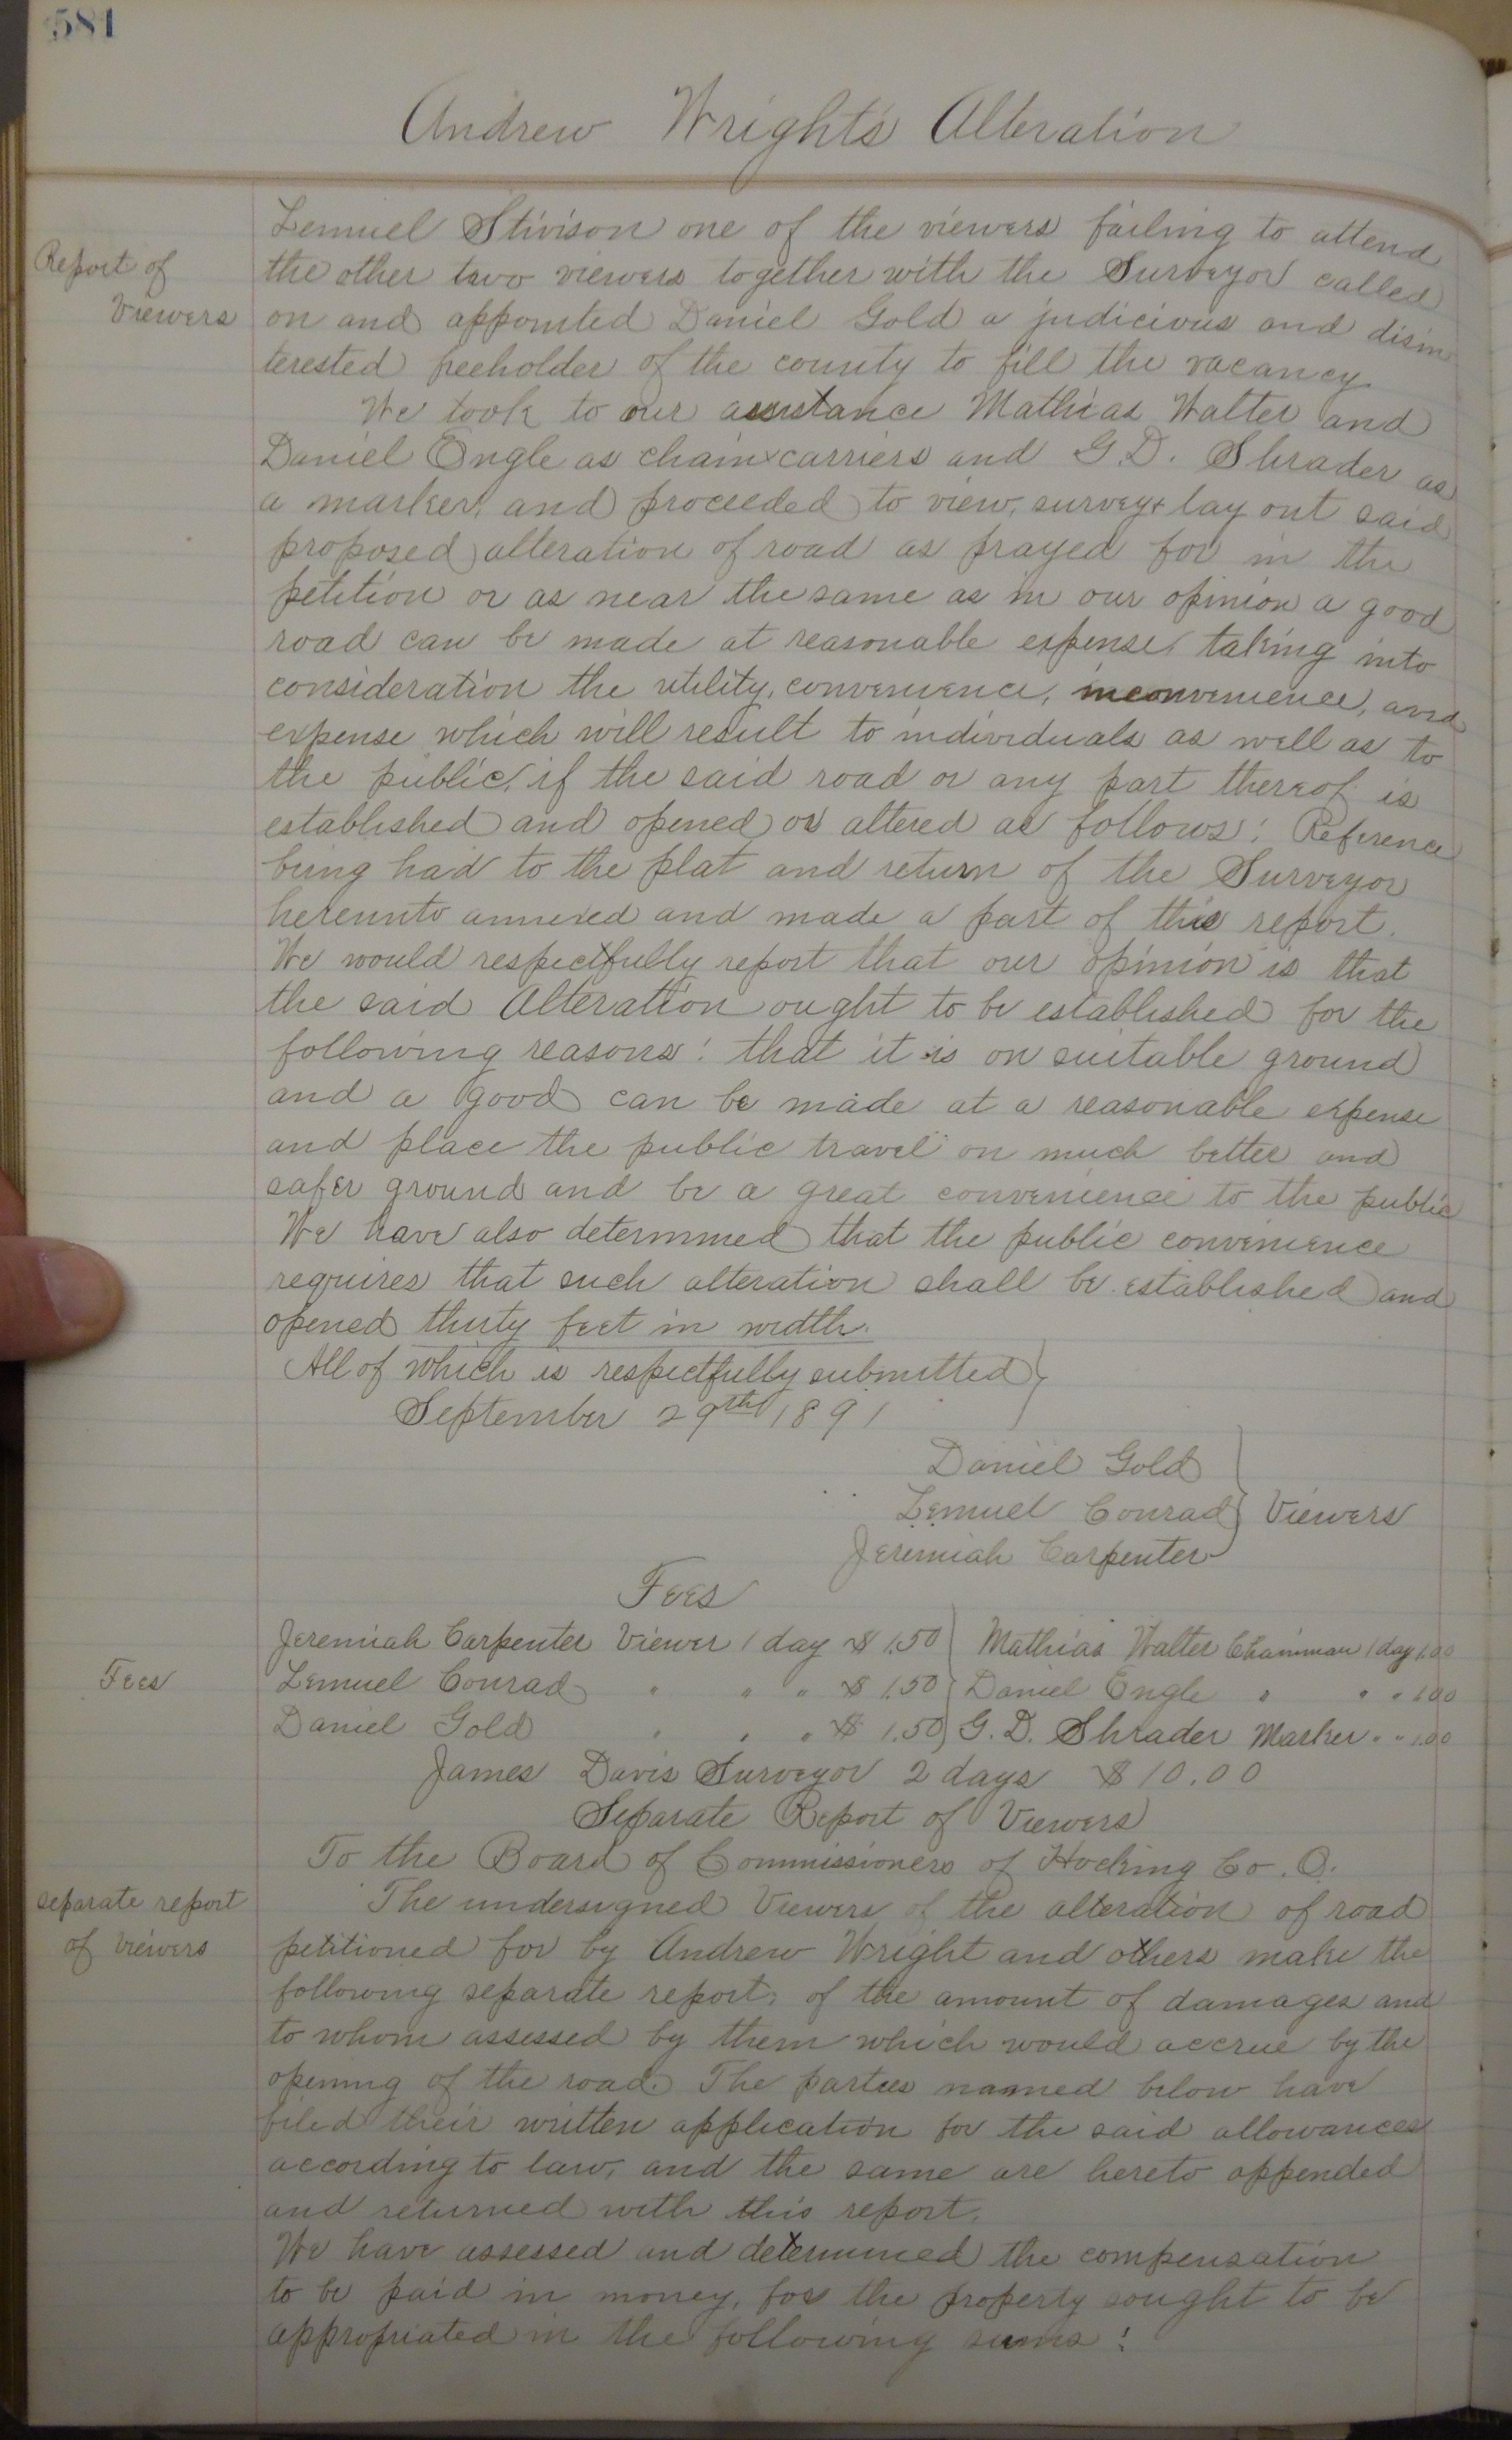 581
Andrew Wright's Alteration
Report of
Viewers
Lemuel Stivison one of the viewers failing to attend
the other two viewers together with the Surveyor called
on and appointed Daniel Gold a judicious and disin
terested freeholder of the county to fill the vacancy.
We took to our assistance Mathias Walter and
Daniel Engle as chain carriers and G.D. Shrader as
a marker, and proceeded to view, survey & lay out said
proposed alteration of road as prayed for in the
petition or as near the same as in our opinion a good
road can be made at reasonable expense, taking into
consideration the utility, convenience, inconvenience, and
expense which will result to individuals as well as to
the public, if the said road or any part thereof is
established and opened or altered as follows: Reference
being had to the plat and return of the Surveyor
hereunto annexed and made a part of this report.
We would respectfully report that our opinion is that
the said Alteration ought to be established for the
following reasons: that it is on suitable ground
and a good can be made at a reasonable expense
and place the public travel on much better and
safer ground and be a great convenience to the public
We have also determined that the public convenience
requires that such alteration shall be established and
opened thirty feet in width.
All of which is respectfully submitted
September 29th 1891
Daniel Gold
Lemuel Conrad } Viewers
Jeremiah Carpenter
Fees
Fees
Jeremiah Carpenter Viewer 1 day $ 1.50 Mathias Walter Chainman 1 day 1.00
Lemuel Conrad " " " $ 1.50 Daniel Engle " " " 1.00
Daniel Gold " " " $ 1.50 G. D. Shrader Marker " " 1.00
James Davis Surveyor 2 days $ 10.00
Separate Report of Viewers
To the Board of Commissioners of Hocking Co. O.
separate report
of viewers
The undersigned Viewers of the alteration of road
petitioned for by Andrew Wright and others make the
following separate report, of the amount of damages and
to whom assessed by them which would accrue by the
opening of the road. The parties named below have
filed their written application for the said allowances
according to law, and the same are hereto appended
and returned with this report.
We have assessed and determined the compensation
to be paid in money, for the property sought to be
appropriated in the following sums: